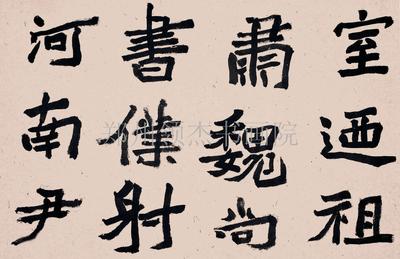 室迺祖
肅魏尚
書僕射
河南尹